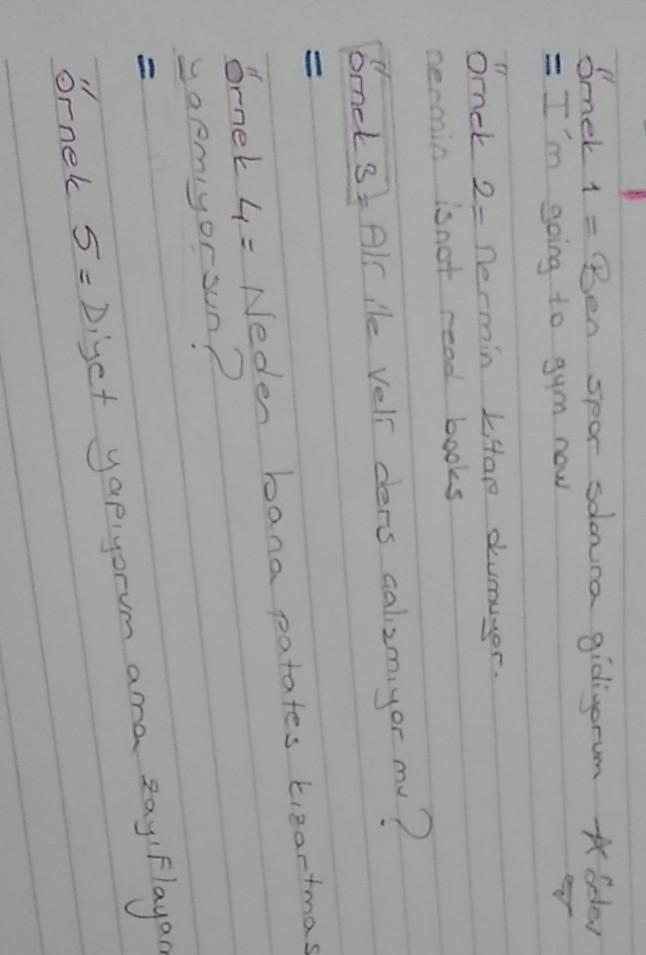 Örnek 1 = Ben spor salonuna gidiyorum
= I'm going to gym now
Örnek 2 = nermin kitap okumuyor.
nermin isnot read books
Örnek 3 = Ali ile Veli ders çalışmıyor mu?
=
Örnek 4 = Neden bana patates kızartmas
yapmıyorsun?
=
Örnek 5 = Diyet yapıyorum ama zayıflayam